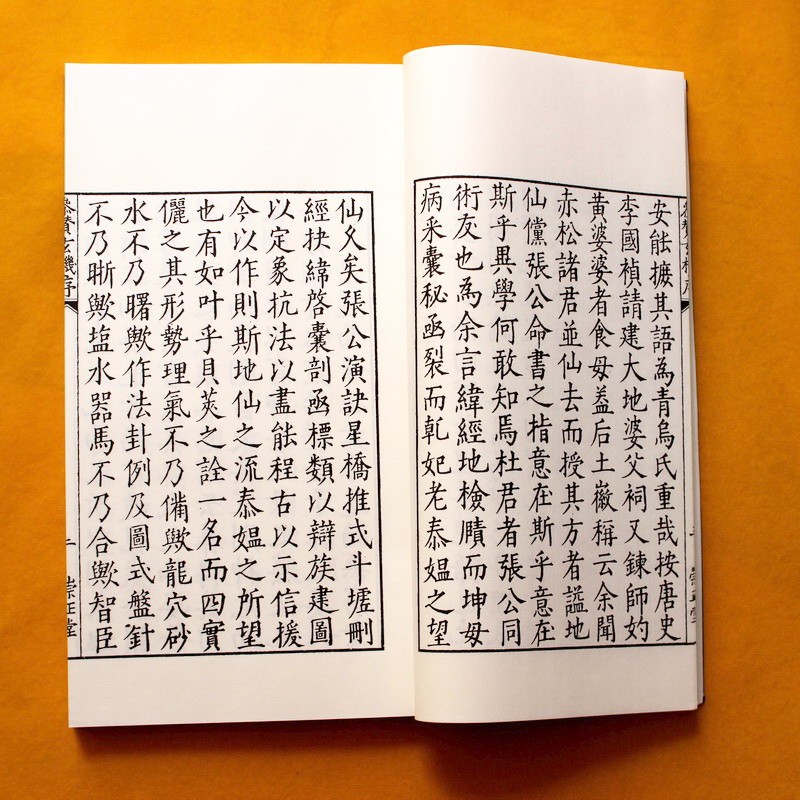 安能摭其語為青烏氏重哉按唐史
李國禎請建大地婆父祠又鍊師妁
黄婆婆者食母葢后土嶶稱云余聞
赤松諸君並仙去而授其方者謚地
仙儻張公命書之指意在斯乎意在
斯乎異學何敢知焉杜君者張公同
術友也為余言緯經地檢賾而坤母
病采囊秘凾裂而乹妃老泰媪之望
仙久矣張公演訣星橋推式斗墟刪
經抉緯啓囊剖凾標類以辯族建圖
以定象抗法以盡能程古以示信援
今以作則斯地仙之流泰媪之所望
也有如叶乎貝莢之詮一名而四實
儷之其形勢理氣不乃備歟龍穴砂
水不乃曙歟作法卦例及圖式盤針
不乃晣歟塩水器馬不乃合歟智臣
叅賛玄機序
二
崇正堂